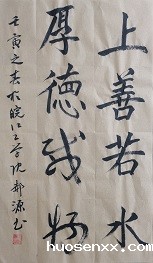 上善若水
厚德载物
壬寅之春於皖江工学沈新源书
huosenxx.com